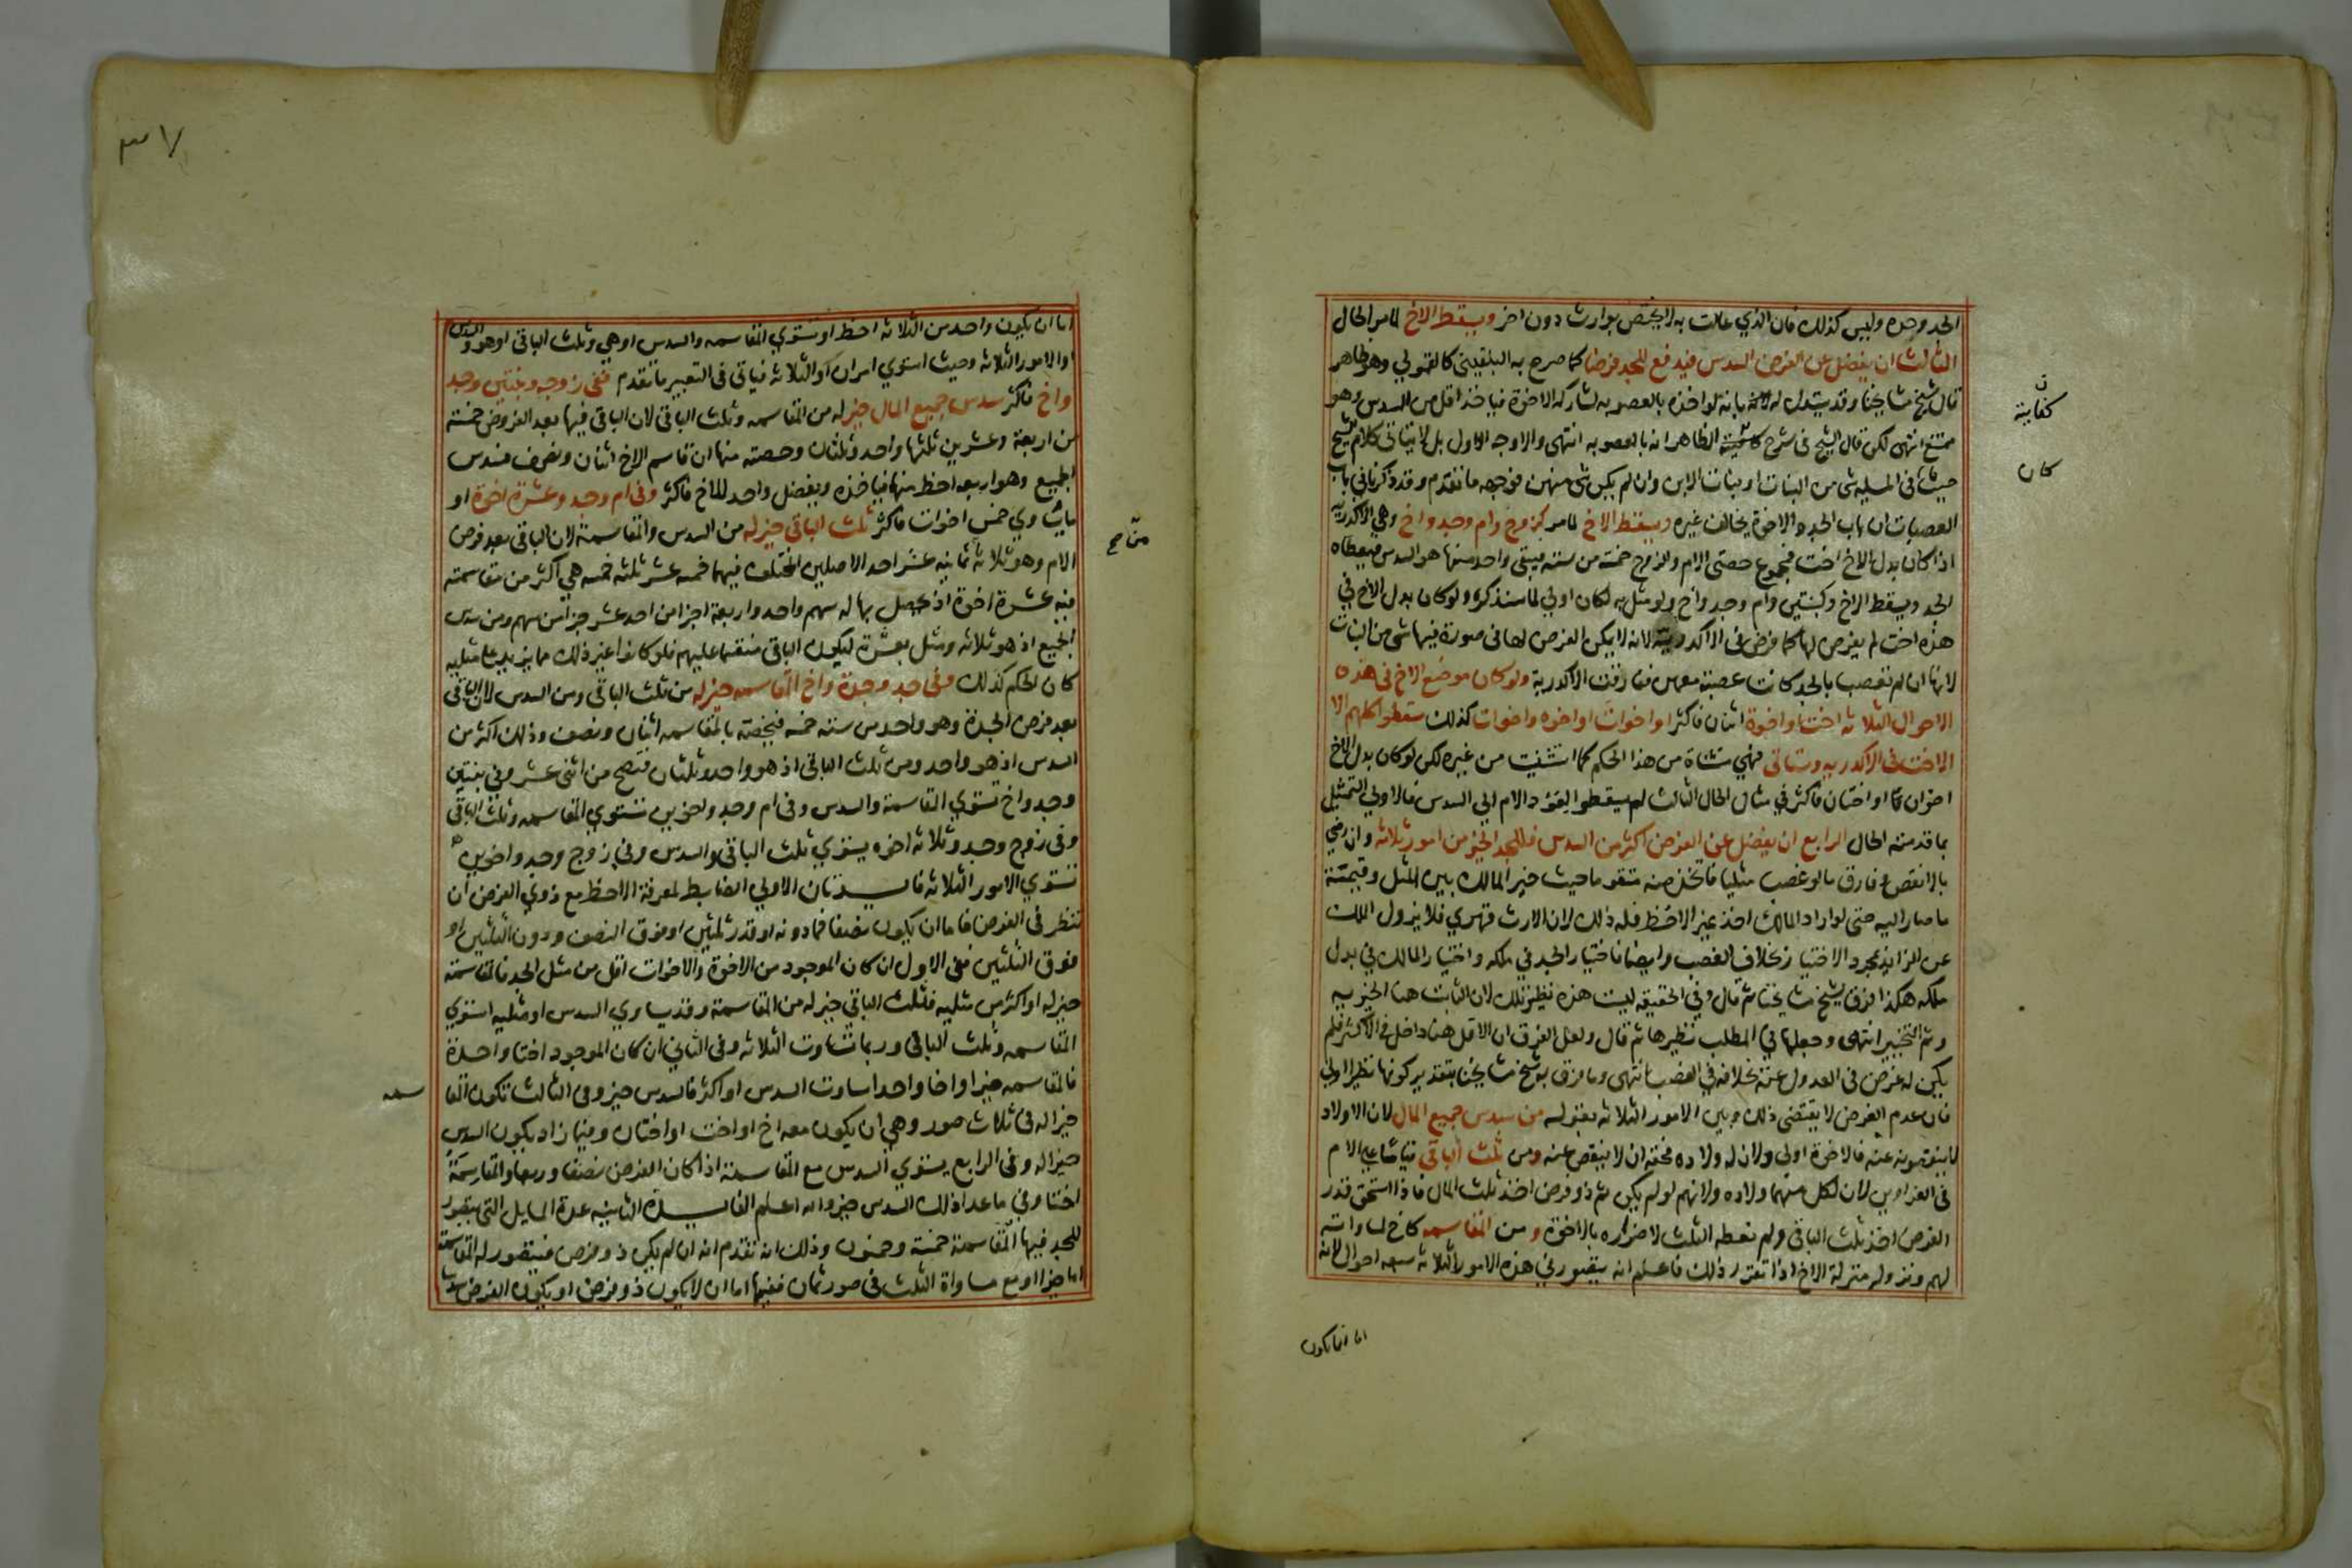 الجد وحده وليس كذلك فان الذي علت به لا يختص بوارث دون اخر ويسقط الاخ لما مر الحال
الثالث ان يفضل عن الفرض السدس فيدفع للجد فرضا كما صرح به البلقيني كالقمولي وهو ظاهر
قال شيخ مشايخنا وقد يستدل له بانه لو اخذه بالعصوبه لشاركه الاخوة فياخذ اقل من السدس وهو
ممتنع انتهى لكن قال الشيخ في شرح كفايته الظاهر انه بالعصوبه انتهى والاوجه الاول بل لا يتاتى كلام الشيخ
حيث كان في المسيله شي من البنات او بنات الابن وان لم يكن شي منهن فوجهه ما تقدم وقد ذكرنا في باب
العصبات ان باب الجد والاخوة يخالف غيره ويسقط الاخ لما مر كزوج وام وجد واخ وهي الاكدريه
اذا كان بدل الاخ اخت فمجموع حصتي الام والزوج خمسة من ستة فيبقى واحد منها هو السدس فيعطاه
الجد ويسقط الاخ وكبنتين وام وجد واخ ولو مثل به لكان اولى لما سنذكره ولو كان بدل الاخ في
هذه اخت لم يفرض لها كما فرض في الاكدرية لانه لا يمكن الفرض لها في صورة فيها شي من البنات
لانها ان لم تعصب بالجد كانت عصبة معهن ففارقت الاكدرية ولو كان موضع الاخ في هذه
الاحوال الثلاثه اختا واخوة اثنان فاكثر او اخوات او اخوه واخوات كذلك سقطوا كلهم الا
الاخت في الاكدريه وستاتي فهي مستثناة من هذا الحكم كما استثنيت من غيره لكن لو كان بدل الاخ
اخوان او اختان فاكثر في مثال الحال الثالث لم يسقطوا لعود الام الى السدس فالاولى التمثيل
بما قدمته الحال الرابع ان يفضل عن الفرض اكثر من السدس فللجد الخير من امور ثلاثه وان رضي
بالانقص وفارق ما لو غصب مثليا فاتخذ منه متقوما حيث خير المالك بين المثل وقيمة
ما صار اليه حتى لو اراد المالك اخذ غير الاحظ فله ذلك لان الارث قهري فلا يزول الملك
عن الزائد بمجرد الاختيار بخلاف الغصب وايضا فاختيار الجد في ملكه واختيار المالك في بدل
ملكه هكذا فرق شيخ مشايخنا ثم قال وفي الحقيقه ليست هذه نظير تلك لان الثابت هنا الخيريه
وثم التخيير انتهى وجعلها في المطلب نظيرها ثم قال ولعل الفرق ان الاقل هنا داخل في الاكثر فلم
يكن له غرض في العدول عنه بخلافه في الغصب انتهى وما فرق به شيخ مشايخنا بتقدير كونها نظيرا اولى
فان عدم الغرض لا يقتضي ذلك وبين الامور الثلاثه بقوله من سدس جميع المال لان الاولاد
لا ينقصونه عنه فالاخوة اولى ولان له ولاده فحقه ان لا ينقص عنه ومن ثلث الباقي قياسا على الام
في الغراوين لان لكل منهما ولاده ولانهم لو لم يكن ثم ذو فرض اخذ ثلث المال فاذا استحق قدر
الفرض اخذ ثلث الباقي ولم نعطه الثلث لاضراره بالاخوة ومن المقاسمه كاخ لمساواته
لهم ونزوله منزلة الاخ اذا تقرر ذلك فاعلم انه يتصور في هذه الامور الثلاثه سبعه احوال لانه
كفايته
كان
اما ان يكون
٣٧
اما ان يكون واحد من الثلاثه احظ او تستوي المقاسمه والسدس او هي وثلث الباقي او هو والسدس
او الامور الثلاثه وحيث استوي امران او الثلاثه فياتي في التعبير ما تقدم ففي زوجه وبنتين وجد
واخ فاكثر سدس جميع المال خير له من المقاسمه وثلث الباقي لان الباقي فيها بعد الفروض خمسة
من اربعة وعشرين ثلثها واحد وثلثان وحصته منها ان قاسم الاخ اثنان ونصف فسدس
الجميع وهو اربعه احظ منها فياخذه ويفضل واحد للاخ فاكثر وفي ام وجد وعشرة اخوة او
ما يساوي خمس اخوات فاكثر ثلث الباقي خير له من السدس والمقاسمة لان الباقي بعد فرض
الام وهو ثلاثه ثمانيه عشر احد الاصلين المختلف فيهما خمسه عشر ثلثه خمسه هي اكثر من مقاسمته
فيه عشرة اخوة اذ يحصل بها له سهم واحد واربعة اجزا من احد عشر جزا من سهم ومن سدس
الجميع اذ هو ثلاثه ومثل بعشرة ليكون الباقي منقسما عليهم فلو كانوا غير ذلك مما يزيد على مثليه
كان الحكم كذلك وفي جد وجدة واخ المقاسمه خير له من ثلث الباقي ومن السدس لان الباقي
بعد فرض الجدة وهو واحد من ستة خمسه فيخصه بالمقاسمه اثنان ونصف وذلك اكثر من
السدس اذ هو واحد ومن ثلث الباقي اذ هو واحد وثلثان فتصح من اثنى عشر وفي بنتين
وجد واخ تستوي المقاسمة والسدس وفي ام وجد واخوين تستوي المقاسمه وثلث الباقي
وفي زوج وجد وثلاثه اخوه يستوي ثلث الباقي والسدس وفي زوج وجد واخوين
تستوي الامور الثلاثه فائدتان الاولى الضابط لمعرفة الاحظ مع ذوي الفرض ان
تنظر في الفرض فاما ان يكون نصفا فما دونه او قدر ثلثين او فوق النصف ودون الثلثين او
فوق الثلثين ففي الاول ان كان الموجود من الاخوة والاخوات اقل من مثلي الجد فالمقاسمة
خير له او اكثر من مثليه فثلث الباقي خير له من المقاسمة وقد يساوي السدس او مثليه استوي
المقاسمه وثلث الباقي وربما تساوت الثلاثه وفي الثاني ان كان الموجود اختا واحدة
فالمقاسمه خير او اخا واحدا ساوت السدس او اكثر فالسدس خير وفي الثالث تكون المقا
سمه
خيرا له في ثلاث صور وهي ان يكون معه اخ او اخت او اختان وفيما زاد يكون السدس
خيرا له وفي الرابع يستوي السدس مع المقاسمة اذا كان الفرض نصفا وربعا والمقاسمة
اختا وفي ما عدا ذلك السدس خير والله اعلم الفائدة الثانيه عدة المسايل التي يتصور
للجد فيها المقاسمة خمسة وخمسون وذلك انه تقدم انه ان لم يكن ذو فرض فيتصور له المقاسمة
اما خيرا او مع مساواة الثلث في صور ثمان ففيها اما ان لا يكون ذو فرض او يكون الفرض سدسا
من صح